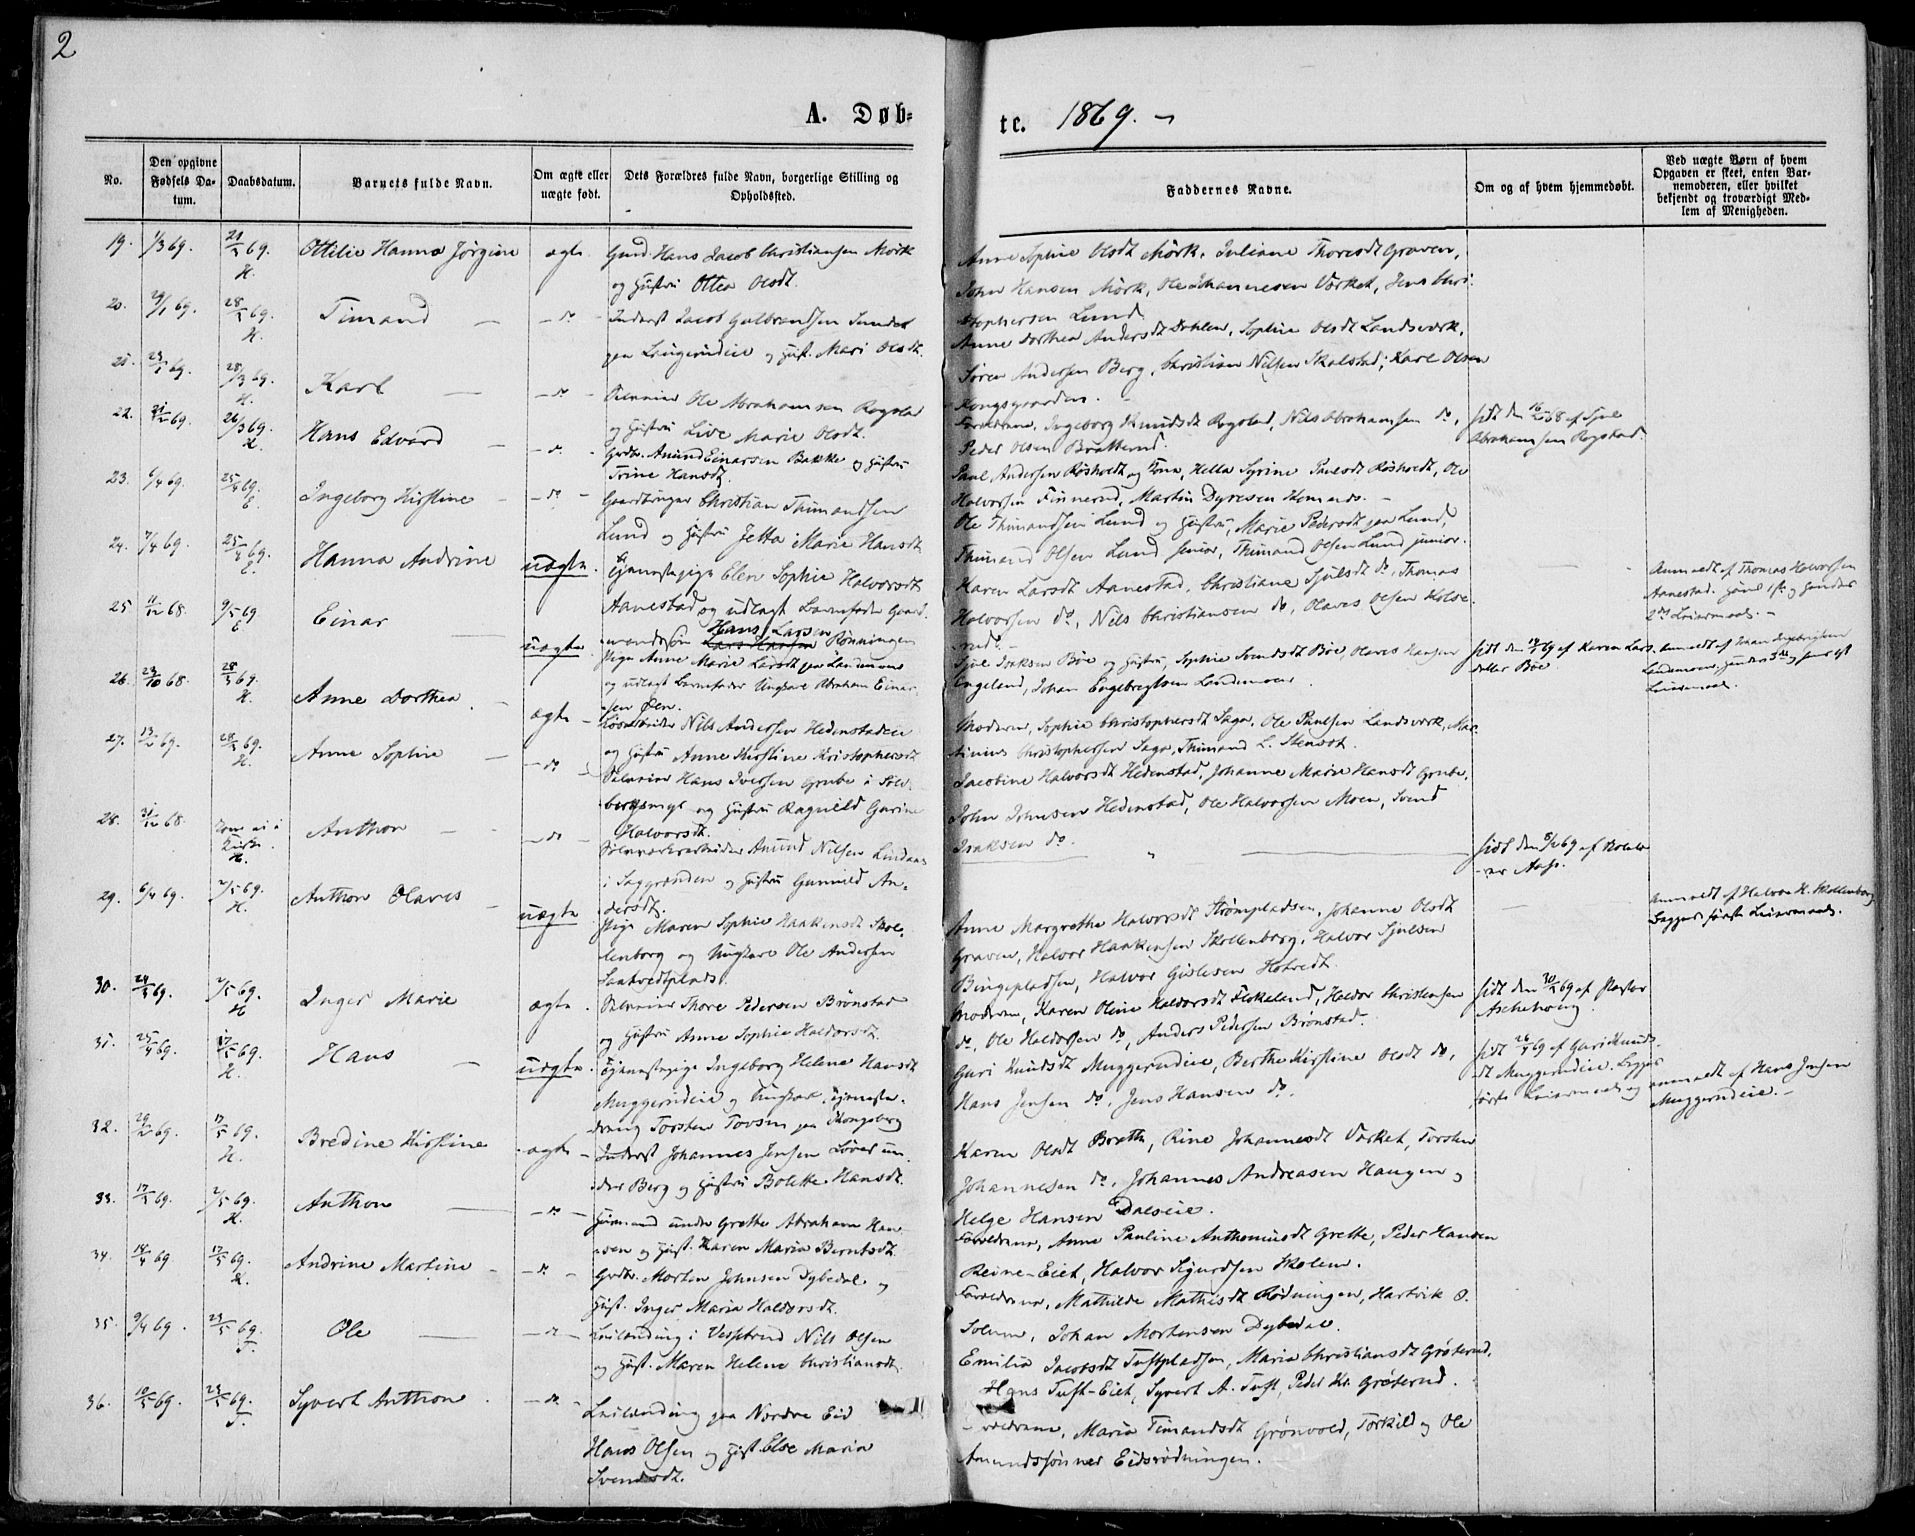 2
A. Døb=
te. 1869. –
No.
Den opgivne
Fødsels Da-
tum.
Daabsdatum.
Barnets fulde Navn.
Om ægte eller
uægte født.
Dets Forældres fulde Navn, borgerlige Stilling og
Opholdssted.
Faddernes Navne.
Om og af hvem hjemmedøbt.
Ved uægte Børn af hvem
Opgaven er skeet, enten Bar-
nemoderen, eller hvilket
bekjendt og troværdigt Med-
lem af Menigheden.
19. 1/3 69. 21/3 69. H. Ottilie Hanna Jørgine ægte. Gmd. Hans Jacob Christiansen Mørk
og Hustru Ottea Olsdt.
Anne Sophie Olsdt Mørk, Juliane Thoresdt Graven,
John Hansen Mørk, Ole Johannesen Værket, Jens Chri-
stophersen Lund
20. 29/1 69. 28/3 69. H. Timand – do – Inderst Jacob Gulbrandsen Sundet
paa Laugerudeie og Hust. Mari Olsdt.
Anne Dorthea Andersdt Dahlen, Sophie Olsdt Landsverk,
Søren Andersen Berg, Christian Nilsen Skalstad, Karl Olsen
Kongsgaarden.
21. 69. 28/3 69. H. Karl – do – Ole Abrahamsen Rogstad
og Hustru Live Marie Olsdt.
Forældrene, Ingeborg Knudsdt Rogstad, Nils Abrahamsen do,
Peder Olsen Bratterud.
hjdt den 68 af Sjul
Abrahamsen Rogstad.
22. 21/2 69. 26/3 69. H. Hans Edvard – do – Grdbr. Amund Einarsen Bakke og Hustru
Trine Hansdt.
Paul Andersen Røsholdt og Kona, Hella Syrine Paulsdt Røsholdt, Ole
Halvorsen Finnerud, Martin Dyresen
23. 6/4 69. 25/4 69. E. Ingeborg Kirstine – do – Gaardbruger Christian Thimandsen
Lund og Hustru Jetta Marie Hansdt
Ole Thimandsen Lund og Hustru, Marie Pedersdt paa Lund,
Thimand Olsen Lund senior, Thimand Olsen Lund junior.
24. 7/4 69. 25/4 69. E. Hanna Andrine uægte. Tjenestepige Elen Sophie Halvorsdt
Aanestad og udlagt Barnefader Gaard-
mandssøn Lars Hansen Hans Larsen Rønningen
Karen Larsdt Aanestad, Christiane Sjulsdt do, Thomas
Halvorsen do, Nils Christiansen do, Olaves Olsen Kolse-
rud. –
Anmeldt af Thomas Halvorsen
Aanestad.
25 11/12 68. 9/5 69. E. Einar uægte Pige Anne Marie Larsdt paa Landemoen
og udlagt Barnefader Ungkarl Abraham Einar-
sen Øen.
Sjul Isaksen Bøe og Hustru, Sophie Svendsdt Bøe, Olaves Hansen
Engeland, Johan Engebregtsen Landemoen.
hjdt den 69 af Karen Lars-
datter Bøe.
anmeldt af Johan Engebrigtsen
Landemoen,
26. 23/10 68. 28/3 69. H. Anne Dorthea ægte Løsarbeider Nils Andersen Hedenstadeie
og Hustru Anne Kirstine Kristophersdt
Moderen, Sophie Christophersdt Saga, Ole Paulsen Landsverk, Mar-
tinius Christophersen Saga, Thimand L. Stensæt.
27. 13/2 69. 28/3 69. H. Anne Sophie – do – Hans Iversen Grube i Sølv-
bergsmyr og Hustru Ragnild Gurine
Halvorsdt.
Jacobine Halvorsdt Hedenstad, Johanne Marie Hansdt Grube,
John Johnsen Hedenstad, Ole Halvorsen Moen, Svend
Isaksen do.
28. 31/12 68. Kom ei i
Kirke. H. Anthon – do Sølvverksarbeider Amund Nilsen Lindaas
i Saggrenden og Hustru Gunnild An-
dersdt.
hjdt den 69 af
29. 6/4 69. 2/5 69. H. Anthon Olaves uægte Pige Maren Sophie Haakensdt Skol-
lenborg og Ungkarl Ole Andersen
Saatvedtplads.
Anne Margrethe Halvorsdt Strømpladsen, Johanne Olsdt
Graven, Halvor Haakensen Skollenborg, Halvor Sjulsen
Bingepladsen, Halvor Gislesen Hotvedt.
anmeldt af Halvor H. Skollenborg
Begges første Leiermaal.
30. 24/3 69. 2/5 69. H Inger Marie ægte. Thore Pedersen Brønstad
og Hustru Anne Sophie Haldorsdt.
Moderen, Karen Oline Haldorsdt Fiskeland, Haldor Christensen
do, Ole Haldorsen do, Anders Pedersen Brønstad.
hjdt den 69 af Pastor
Aschehoug.
31. 25/4 69. 17/5 69. H. Hans uægte. Tjenestepige Ingeborg Helene Hansdt
Muggerudeie og Ungkarl, Tjeneste-
dreng Torsten Tovsen paa Kongsberg
Guri Knudsdt Muggerudeie, Berthe Kirstine Olsdt do,
Hans Jensen do, Jens Hansen do.
hjdt 26/4 69 af Guri Knuds-
dt Muggerudeie. Begges
første Leiermaal og
anmeldt af Hans Jensen
Muggerudeie. –
32. 69. 17/5 69. H. Bredine Kirstine ægte – Inderst Johannes Jensen Løver un-
der Berg og Hustru Bolette Hansdt.
Karen Olsdt Brette, Rine Johannesdt Værket, Torsten
Johannesen do, Johannes Andreasen Haugen og
Helge Hansen Dalseie.
33. 17/3 69. 2/5 69. H. Anthon – do – Huusmand under Grette Abraham Han-
sen og Hust. Karen Maria Berntsdt.
Forældrene, Anne Pauline Anthoniusdt Grette, Peder Hansen
Reine-Eiet, Halvor Sigurdsen Skolem.
34. 18/4 69. 17/5 69. H. Andrine Martine – do – Grdbr. Morten Johnsen Dybedal og
Hust. Inger Maria Haldorsdt.
Forældrene, Mathilde Mathisdt Rødningen, Hartvik O.
Solum, Johan Mortensen Dybedal.
35. 9/4 69. 23/5 69. J. Ole – do – Leilænding i Vesstrud Nils Olsen
og Hust. Maren Helene Christiansdt.
Emilie Jacobsdt Tuftpladsen, Maria Christiansdt Grøterud,
Hans Tuft-Eiet, Syvert A. Tuft, Peder Kr. Grøterud.
36. 10/3 69. 23/5 69. J. Syvert Anthon – do – Leilænding paa Nordre Eid
Hans Olsen og Hust. Else Maria
Svendsdt.
Forældrene, Maria Timandsdt Grønvold, Torkild og Ole
Amundssønner Eidsrødningen.